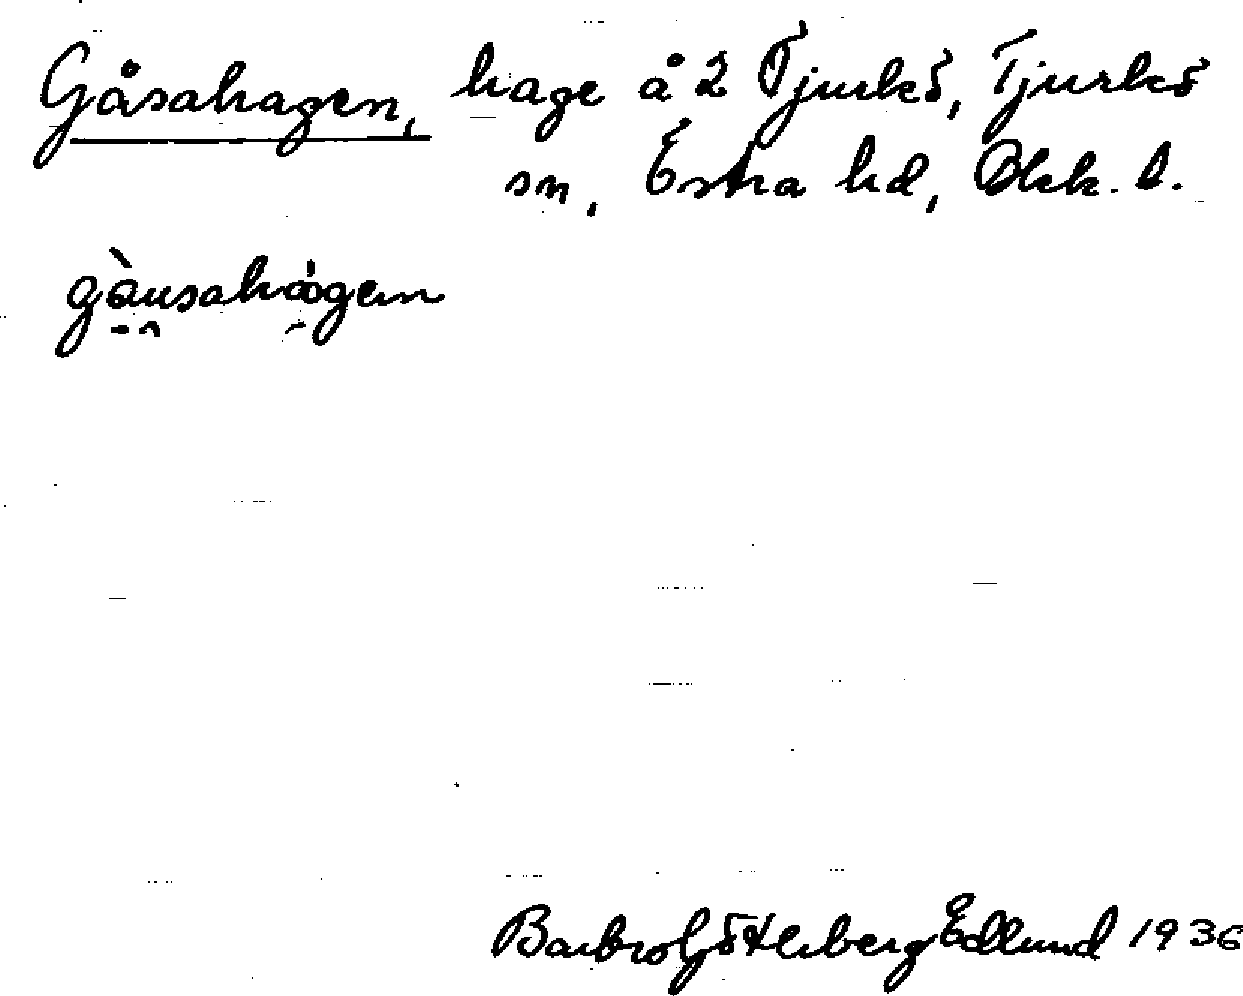 Gåsahagen, hage å 2 Tjurkö, Tjurkö
sn, Östra hd, Blek. l.
gàusahágen
Barbro Götherberg Edlund 1936